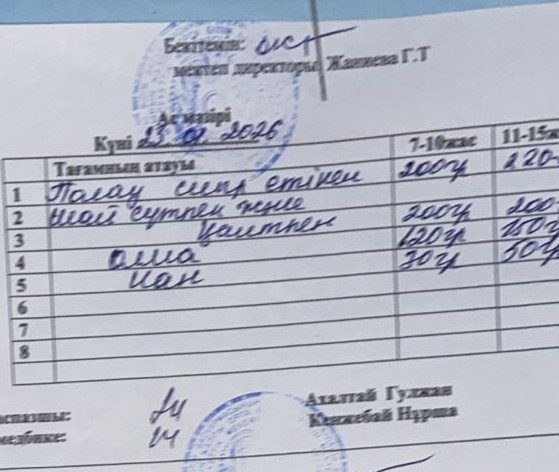 Бекітемін:
мектеп директоры Жаниева Г.Т
Ас мәзірі
Күні 23.01.2026
Тағамның атауы 7-10жас 11-15жа
1 Палау сиыр етімен 200гр 220
2 Шай сүтпен және
3 қантпен 200гр 200
4 алма 120гр 150г
5 нан 30гр 50гр
6
7
8
аспазшы: Ахалтай Гулжан
медбике: Кенжебай Нұрша